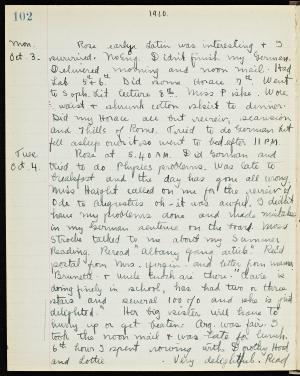 102
1910.
Mon.
Oct. 3.
Rose early. Latin was interesting & I
survived. No Eng. Didn't finish my German.
Delivered morning and noon mail. Had
Lab 5th & 6th. Did some Horace 7th. Went
to Soph. Lit lecture 8th. Miss Fiske. Wore
waist & shrunk cotton skirt to dinner.
Did my Horace all but review, scansion
and 7 hills of Rome. Tried to do German but
fell asleep over it, so went to bed after 11 P.M.
Tues.
Oct 4.
Rose at 5.40 A.M. Did German and
tried to do Physics problems. Was late to
breakfast and the day has gone all wrong.
Miss Haight called on me for the review of
Ode to Augustus oh - it was awful. I didn't
have my problems done and made mistakes
in my German sentence on the board. Miss
talked to me about my Summer
Reading. Read
postal from Mrs. and letter from mama
"Brunett & uncle there "Clare is
doing finely in school, has had two or three
stars and several 100% and she is just
delighted." Her big sister will have to
hurry up or get beaten. Arg. was fair. I
took the noon mail & was late for lunch.
6th hour I spent rowing with Dorothy Hood
and Lottie - Very delightful. Read